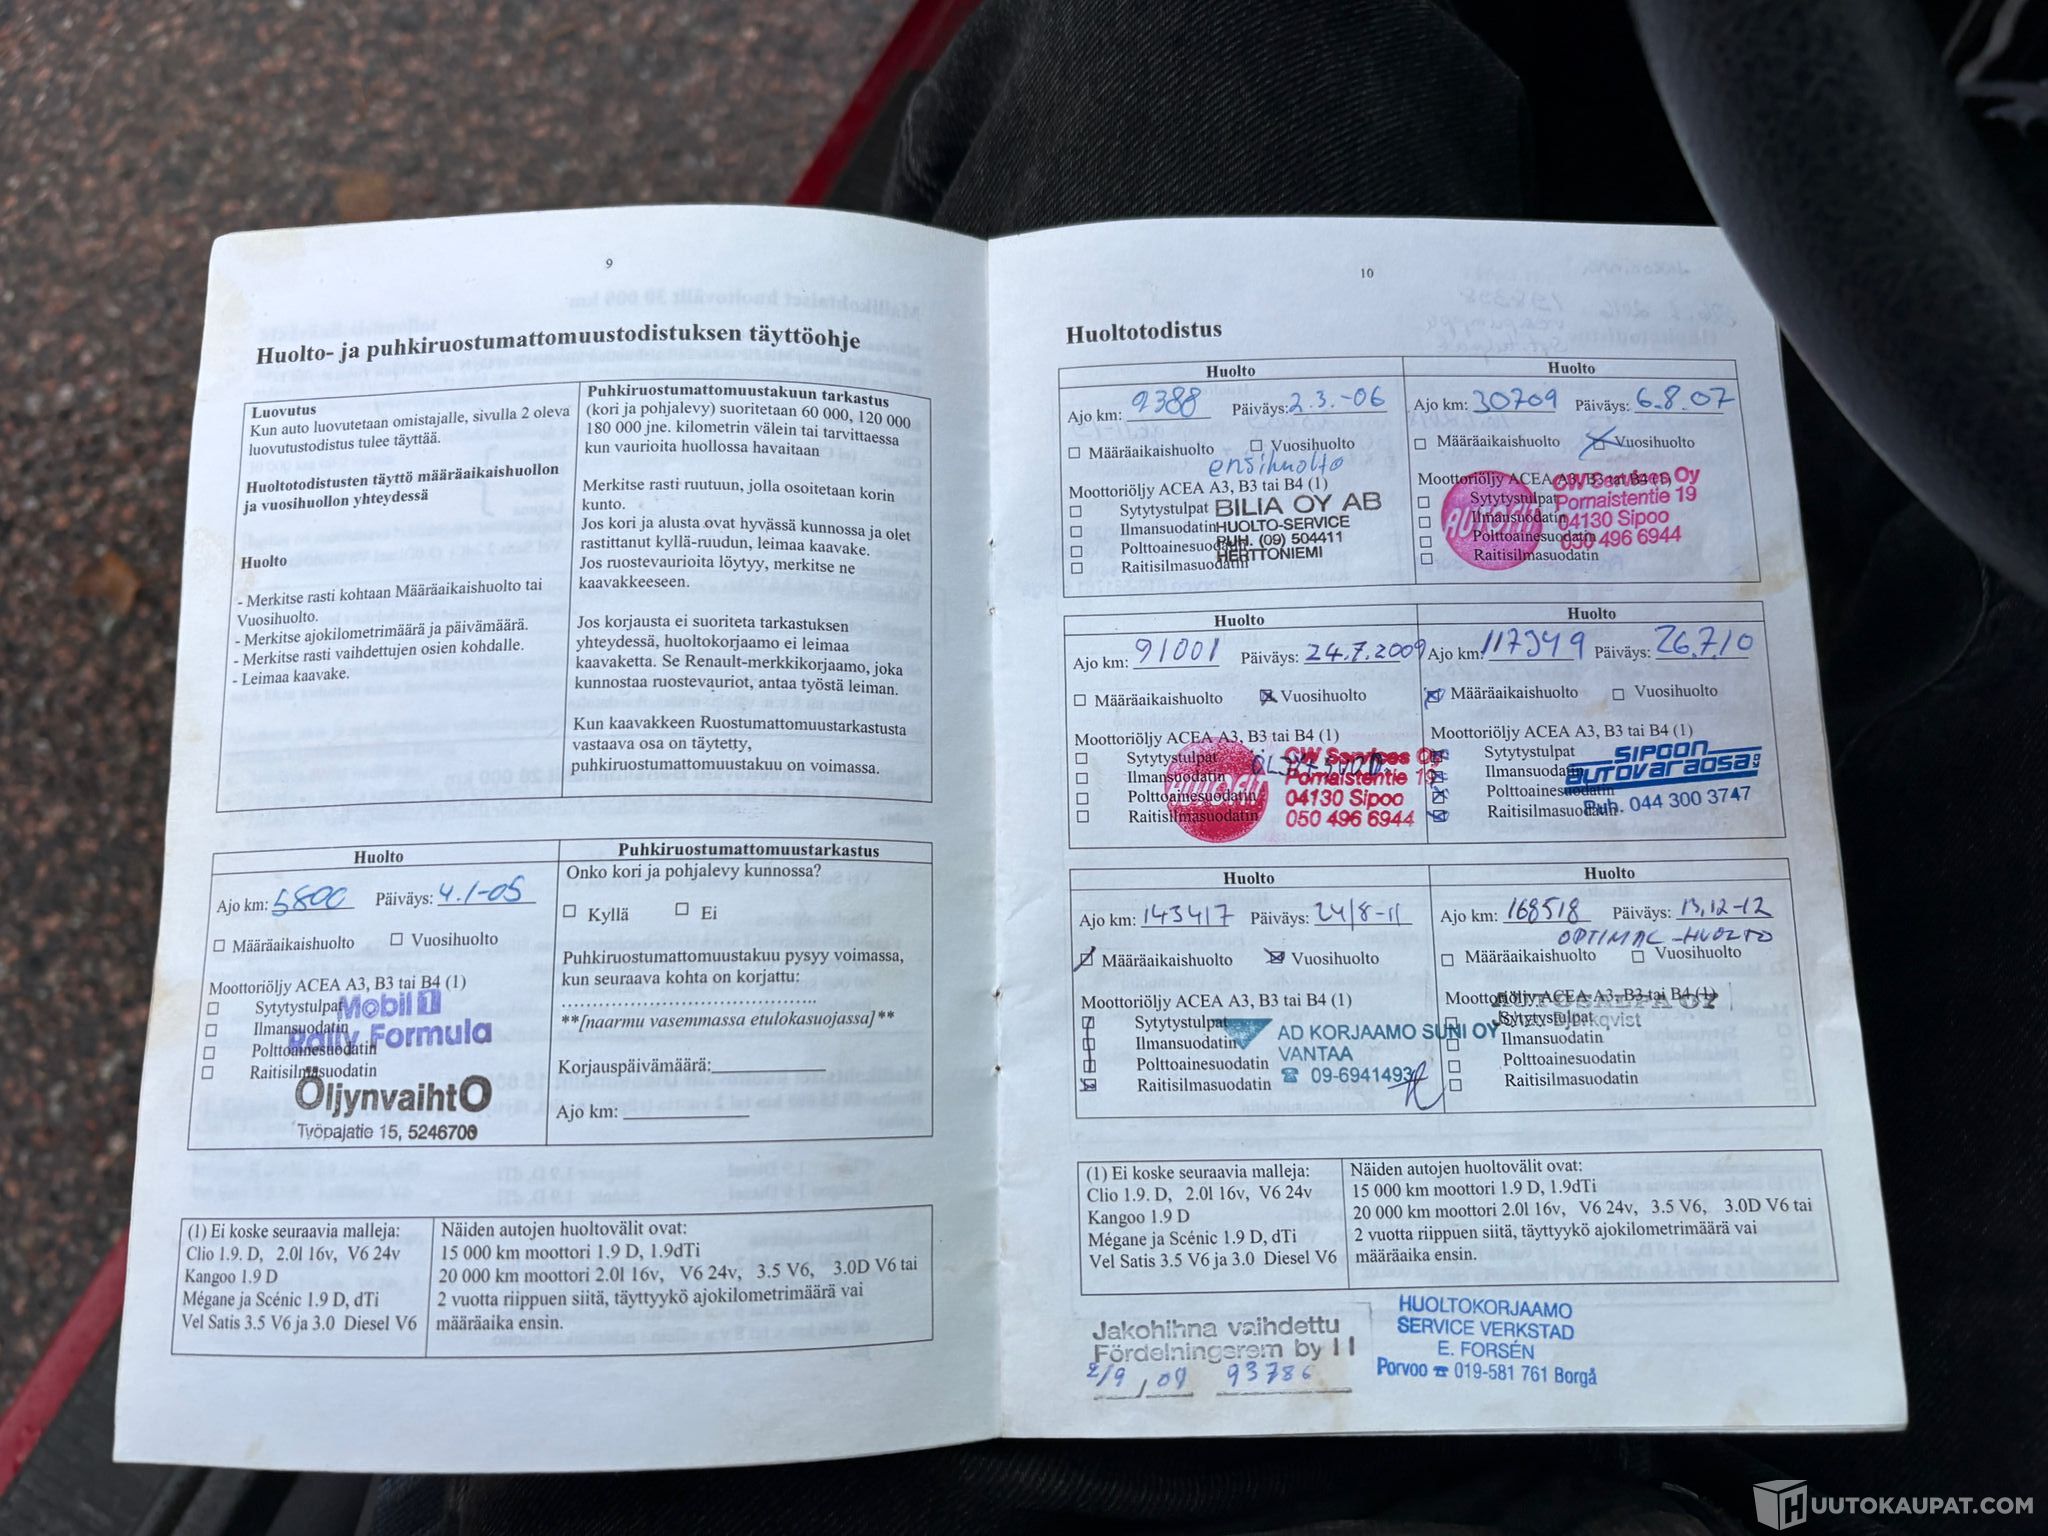 9
Huolto- ja puhkiruostumattomuustodistuksen täyttöohje
Luovutus
Kun auto luovutetaan omistajalle, sivulla 2 oleva
luovutustodistus tulee täyttää.
Huoltotodistusten täyttö määräaikaishuollon
ja vuosihuollon yhteydessä
Huolto
- Merkitse rasti kohtaan Määräaikaishuolto tai
Vuosihuolto.
- Merkitse ajokilometrimäärä ja päivämäärä.
- Merkitse rasti vaihdettujen osien kohdalle.
- Leimaa kaavake.
Puhkiruostumattomuustakuun tarkastus
(kori ja pohjalevy) suoritetaan 60 000, 120 000
180 000 jne. kilometrin välein tai tarvittaessa
kun vaurioita huollossa havaitaan
Merkitse rasti ruutuun, jolla osoitetaan korin
kunto.
Jos kori ja alusta ovat hyvässä kunnossa ja olet
rastittanut kyllä-ruudun, leimaa kaavake.
Jos ruostevaurioita löytyy, merkitse ne
kaavakkeeseen.
Jos korjausta ei suoriteta tarkastuksen
yhteydessä, huoltokorjaamo ei leimaa
kaavaketta. Se Renault-merkkikorjaamo, joka
kunnostaa ruostevauriot, antaa työstä leiman.
Kun kaavakkeen Ruostumattomuustarkastusta
vastaava osa on täytetty,
puhkiruostumattomuustakuu on voimassa.
Huolto
Ajo km: 5800 Päiväys: 4.1-05
Määräaikaishuolto Vuosihuolto
Moottoriöljy ACEA A3, B3 tai B4 (1)
Sytytystulpat
Ilmansuodatin
Polttoainesuodatin
Raitisilmasuodatin
Mobil 1
Rally Formula
ÖljynvaihtO
Työpajatie 15, 5246700
Puhkiruostumattomuustarkastus
Onko kori ja pohjalevy kunnossa?
Kyllä Ei
Puhkiruostumattomuustakuu pysyy voimassa,
kun seuraava kohta on korjattu:
..........................................
**[naarmu vasemmassa etulokasuojassa]**
Korjauspäivämäärä:
Ajo km:
(1) Ei koske seuraavia malleja:
Clio 1.9. D, 2.0l 16v, V6 24v
Kangoo 1.9 D
Mégane ja Scénic 1.9 D, dTi
Vel Satis 3.5 V6 ja 3.0 Diesel V6
Näiden autojen huoltovälit ovat:
15 000 km moottori 1.9 D, 1.9dTi
20 000 km moottori 2.0l 16v, V6 24v, 3.5 V6, 3.0D V6 tai
2 vuotta riippuen siitä, täyttyykö ajokilometrimäärä vai
määräaika ensin.
10
Huoltotodistus
Huolto
Ajo km: 9388 Päiväys: 2.3.-06
Määräaikaishuolto Vuosihuolto
ensihuolto
Moottoriöljy ACEA A3, B3 tai B4 (1)
Sytytystulpat
Ilmansuodatin
Polttoainesuodatin
Raitisilmasuodatin
BILIA OY AB
HUOLTO-SERVICE
PUH. (09) 504411
HERTTONIEMI
Huolto
Ajo km: 30709 Päiväys: 6.8.07
Määräaikaishuolto Vuosihuolto
Moottoriöljy ACEA A3, B3 tai B4 (1)
Sytytystulpat
Ilmansuodatin
Polttoainesuodatin
Raitisilmasuodatin
AUTOFIT
CW Services Oy
Pornaistentie 19
04130 Sipoo
050 496 6944
Huolto
Ajo km: 91001 Päiväys: 24.7.2009
Määräaikaishuolto Vuosihuolto
Moottoriöljy ACEA A3, B3 tai B4 (1)
Sytytystulpat
Ilmansuodatin
Polttoainesuodatin
Raitisilmasuodatin
AUTOFIT
CW Services Oy
Pornaistentie 19
04130 Sipoo
050 496 6944
Huolto
Ajo km: 117349 Päiväys: 26.7.10
Määräaikaishuolto Vuosihuolto
Moottoriöljy ACEA A3, B3 tai B4 (1)
Sytytystulpat
Ilmansuodatin
Polttoainesuodatin
Raitisilmasuodatin
SIPOON
autovaraosa oy
Puh. 044 300 3747
Huolto
Ajo km: 143417 Päiväys: 24/8-11
Määräaikaishuolto Vuosihuolto
Moottoriöljy ACEA A3, B3 tai B4 (1)
Sytytystulpat
Ilmansuodatin
Polttoainesuodatin
Raitisilmasuodatin
AD KORJAAMO SUNI OY
VANTAA
☎ 09-6941493
Huolto
Ajo km: 168518 Päiväys: 13.12-12
OPTIMAL-HUOLTO
Määräaikaishuolto Vuosihuolto
Moottoriöljy ACEA A3, B3 tai B4 (1)
Sytytystulpat
Ilmansuodatin
Polttoainesuodatin
Raitisilmasuodatin
(1) Ei koske seuraavia malleja:
Clio 1.9. D, 2.0l 16v, V6 24v
Kangoo 1.9 D
Mégane ja Scénic 1.9 D, dTi
Vel Satis 3.5 V6 ja 3.0 Diesel V6
Näiden autojen huoltovälit ovat:
15 000 km moottori 1.9 D, 1.9dTi
20 000 km moottori 2.0l 16v, V6 24v, 3.5 V6, 3.0D V6 tai
2 vuotta riippuen siitä, täyttyykö ajokilometrimäärä vai
määräaika ensin.
Jakohihna vaihdettu
Fördelningsrem by
2/9 / 09 93786
HUOLTOKORJAAMO
SERVICE VERKSTAD
E. FORSÉN
Porvoo ☎ 019-581 761 Borgå
HUUTOKAUPAT.COM